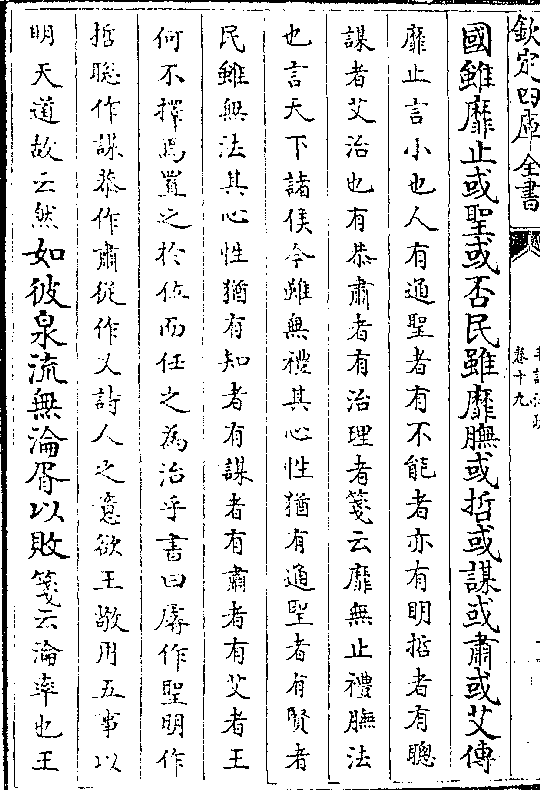 欽定四庫全書
卷十九
國雖靡止或聖或否民雖靡膴或哲或謀或肅或艾傳
靡止言小也人有通聖者有不能者亦有明哲者有聰
謀者艾治也有恭肅者有治理者箋云靡無止禮膴法
也言天下諸侯今雖無禮其心性猶有通聖者有賢者
民雖無法其心性猶有知者有謀者有肅者有艾者王
何不擇焉置之於位而任之為治乎書曰睿作聖明作
哲聰作謀恭作肅從作乂詩人之意欲王敬用五事以
明天道故云然如彼泉流無淪胥以敗箋云淪率也王